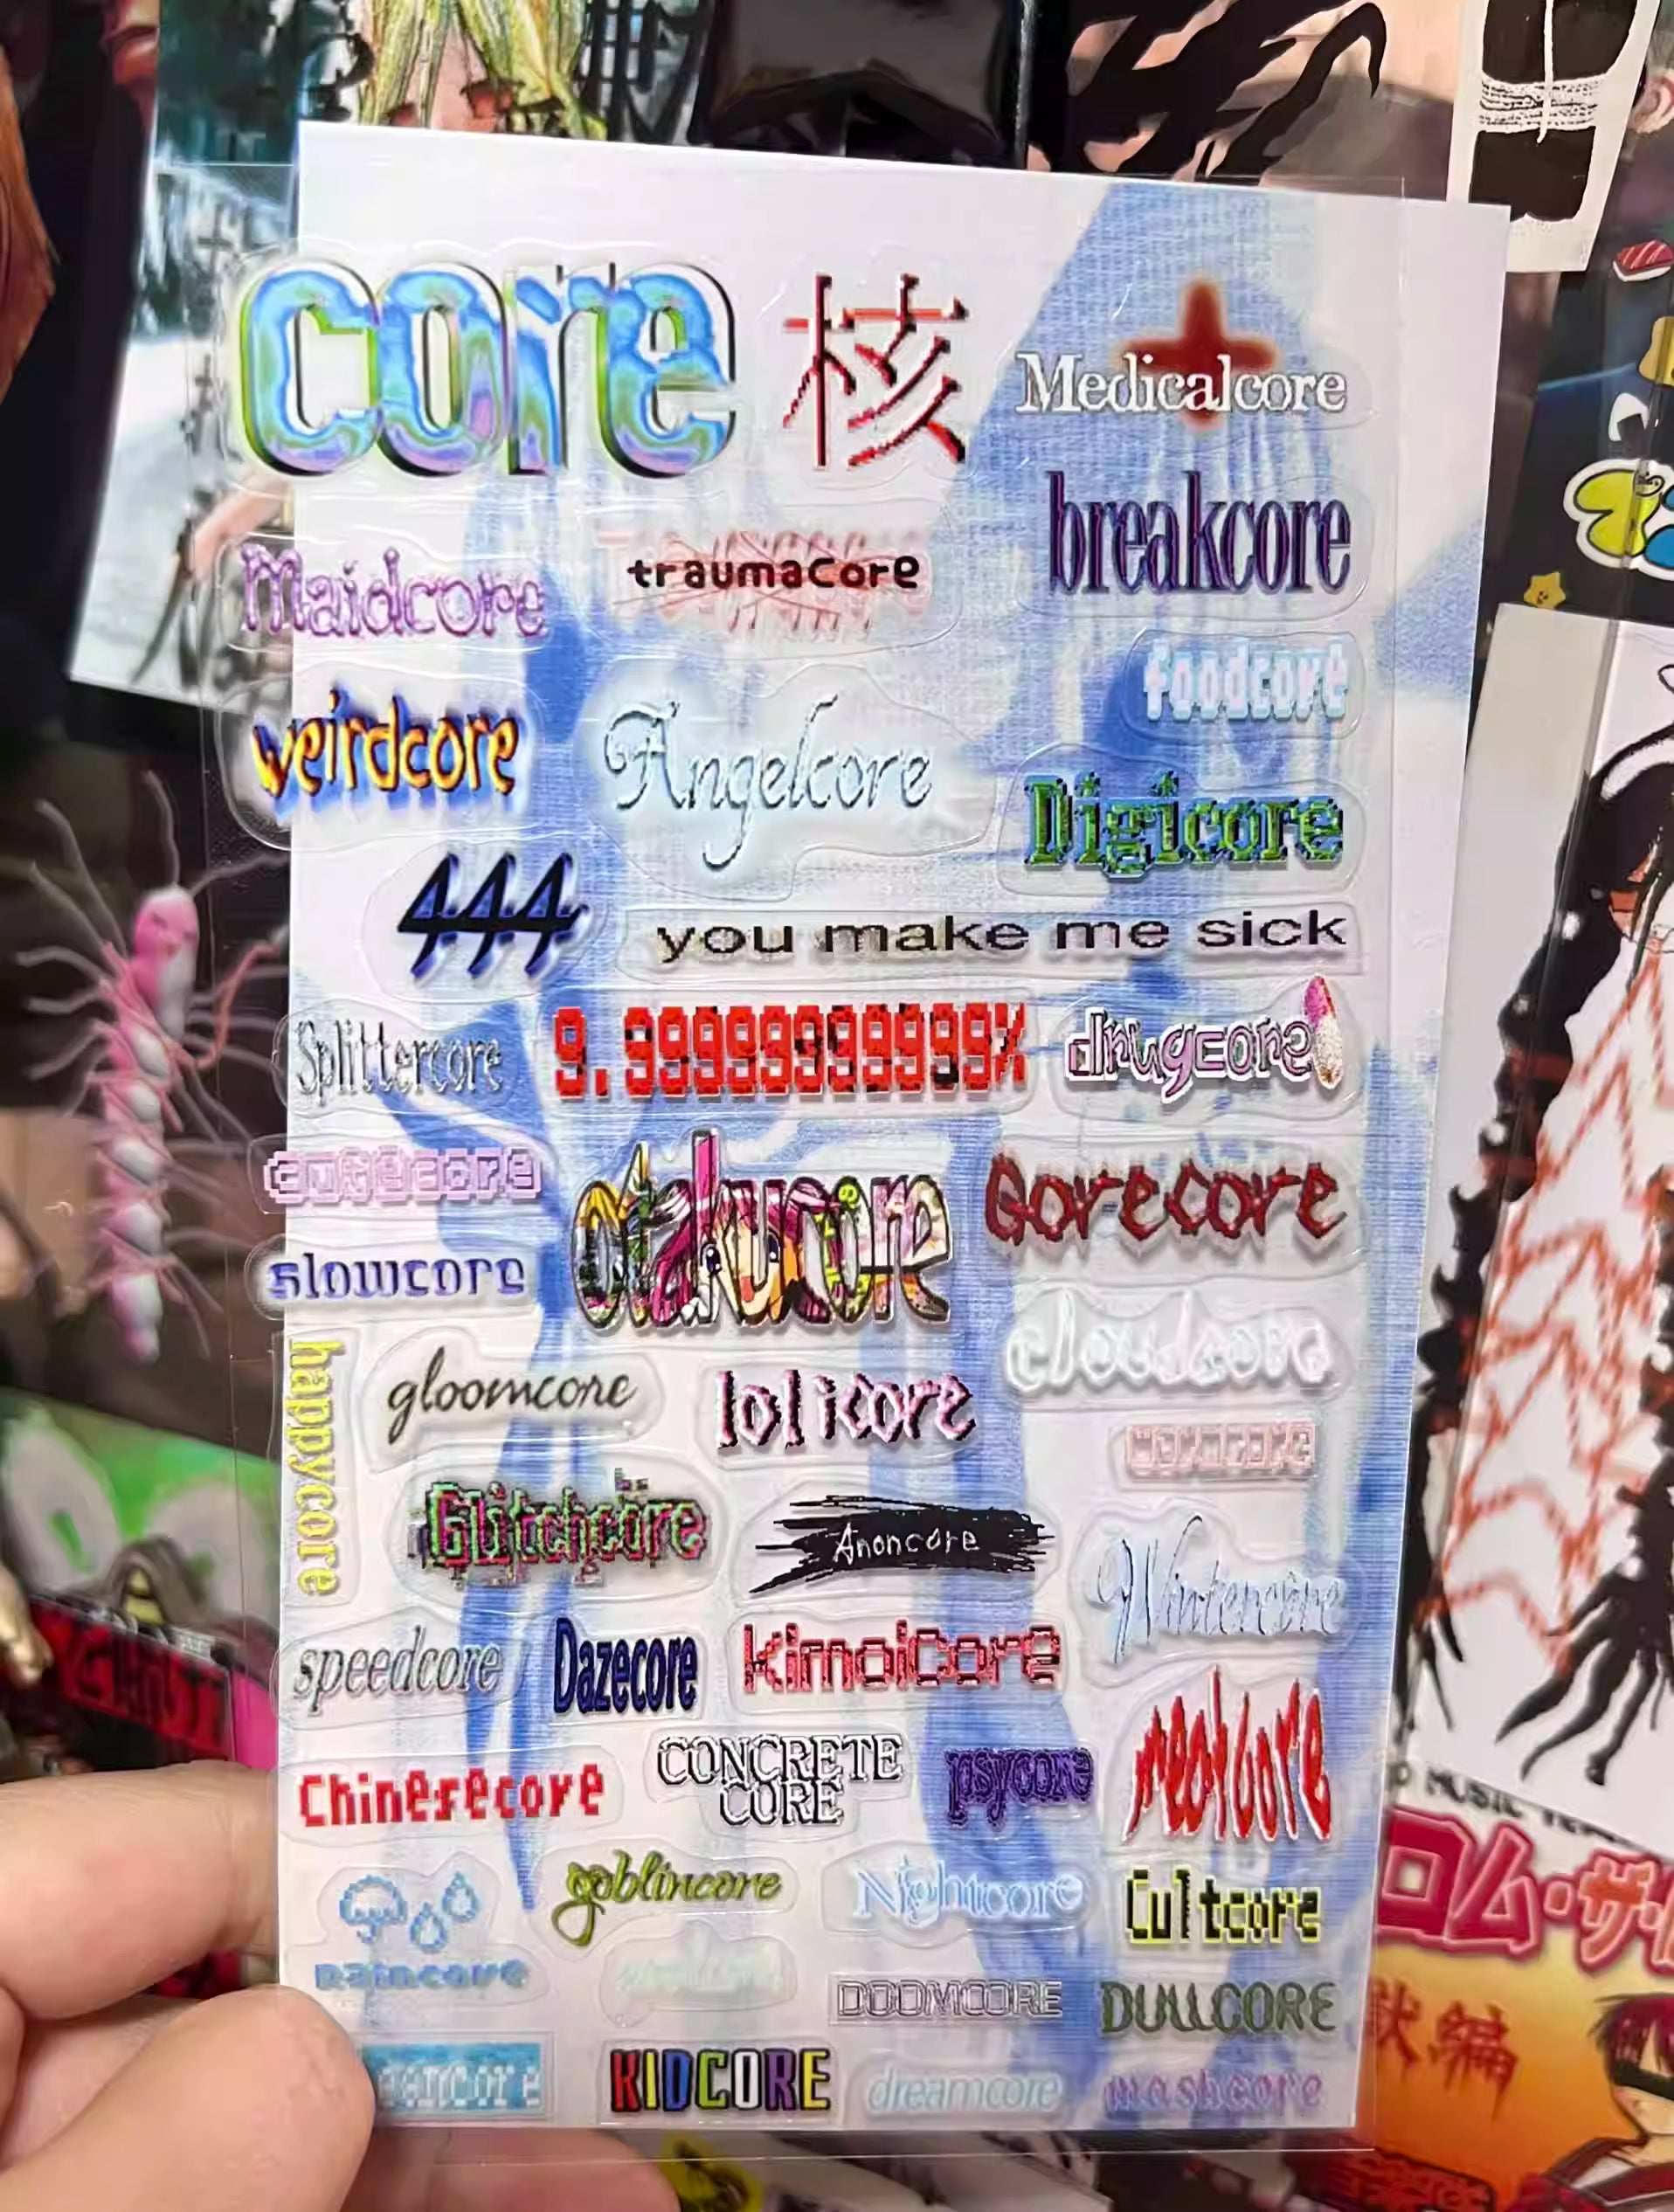 core 核 Medicalcore
breakcore
Maidcore traumaCore
foodcore
weirdcore Angelcore
Digicore
444 you make me sick
Splittercore 9.99999999999% drugcore
cutecore otakucore Gorecore
slowcore
cloudcore
happycore gloomcore lolicore
Glitchcore Anoncore
Wintercore
speedcore Dazecore kimoiCore
Chinesecore CONCRETE CORE psycore meatcore
goblincore Nightcore Cultcore
raincore
DOOMCORE DULLCORE
KIDCORE dreamcore mashcore
コム・ザ・
秋編